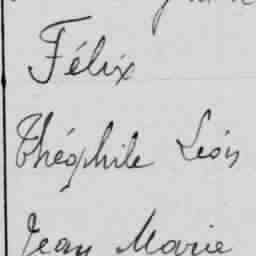 Félix
Théophile Léon
Jean Marie